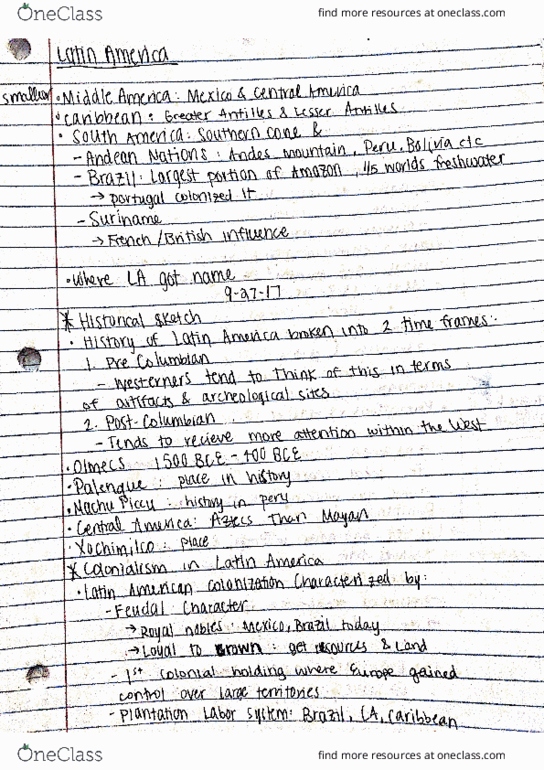 OneClass
find more resources at oneclass.com
Latin America
smaller • Middle America: Mexico & Central America
• Caribbean: Greater Antilles & Lesser Antilles
• South America: Southern cone &
- Andean Nations: Andes mountain, Peru, Bolivia etc
- Brazil: Largest portion of Amazon, 1/5 worlds freshwater
→ Portugal colonized it
- Suriname
→ French/British influence
• Where LA got name
9-27-17
* Historical Sketch
• History of Latin America broken into 2 time frames:
1. Pre Columbian
- Westerners tend to think of this in terms
of artifacts & archeological sites
2. Post-Columbian
- Tends to recieve more attention within the West
• Olmecs 1500 BCE - 400 BCE
• Palenque: place in history
• Machu Piccu: history in peru
• Central America: Aztecs than Mayan
• Xochimilco: place
* Colonialism in Latin America
• Latin American colonization characterized by:
- Feudal Character
→ Royal nobles: Mexico, Brazil today
→ Loyal to crown: get resources & land
- 1st colonial holding where Europe gained
control over large territories
- Plantation Labor system: Brazil, CA, Caribbean
OneClass
find more resources at oneclass.com